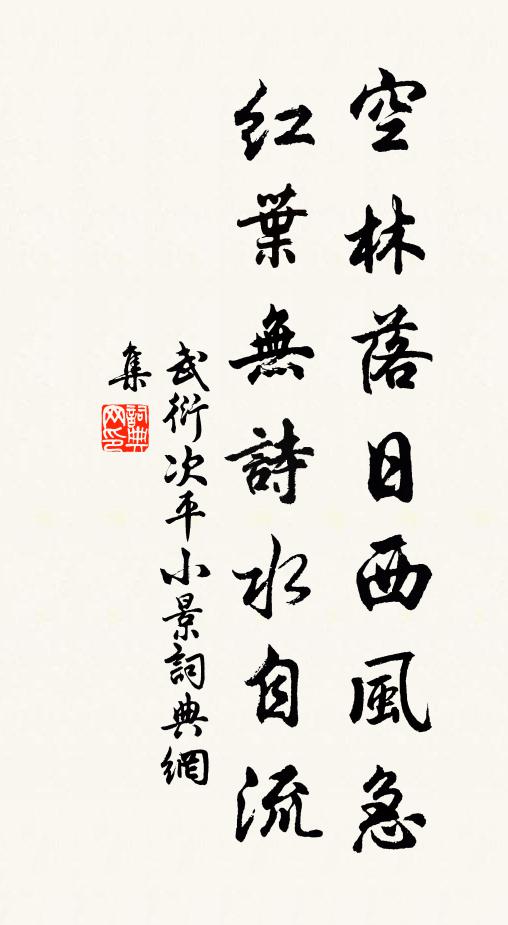 空林落日西風急
紅葉無詩水自流
武衍次平小景詞典網
集
詞典网印